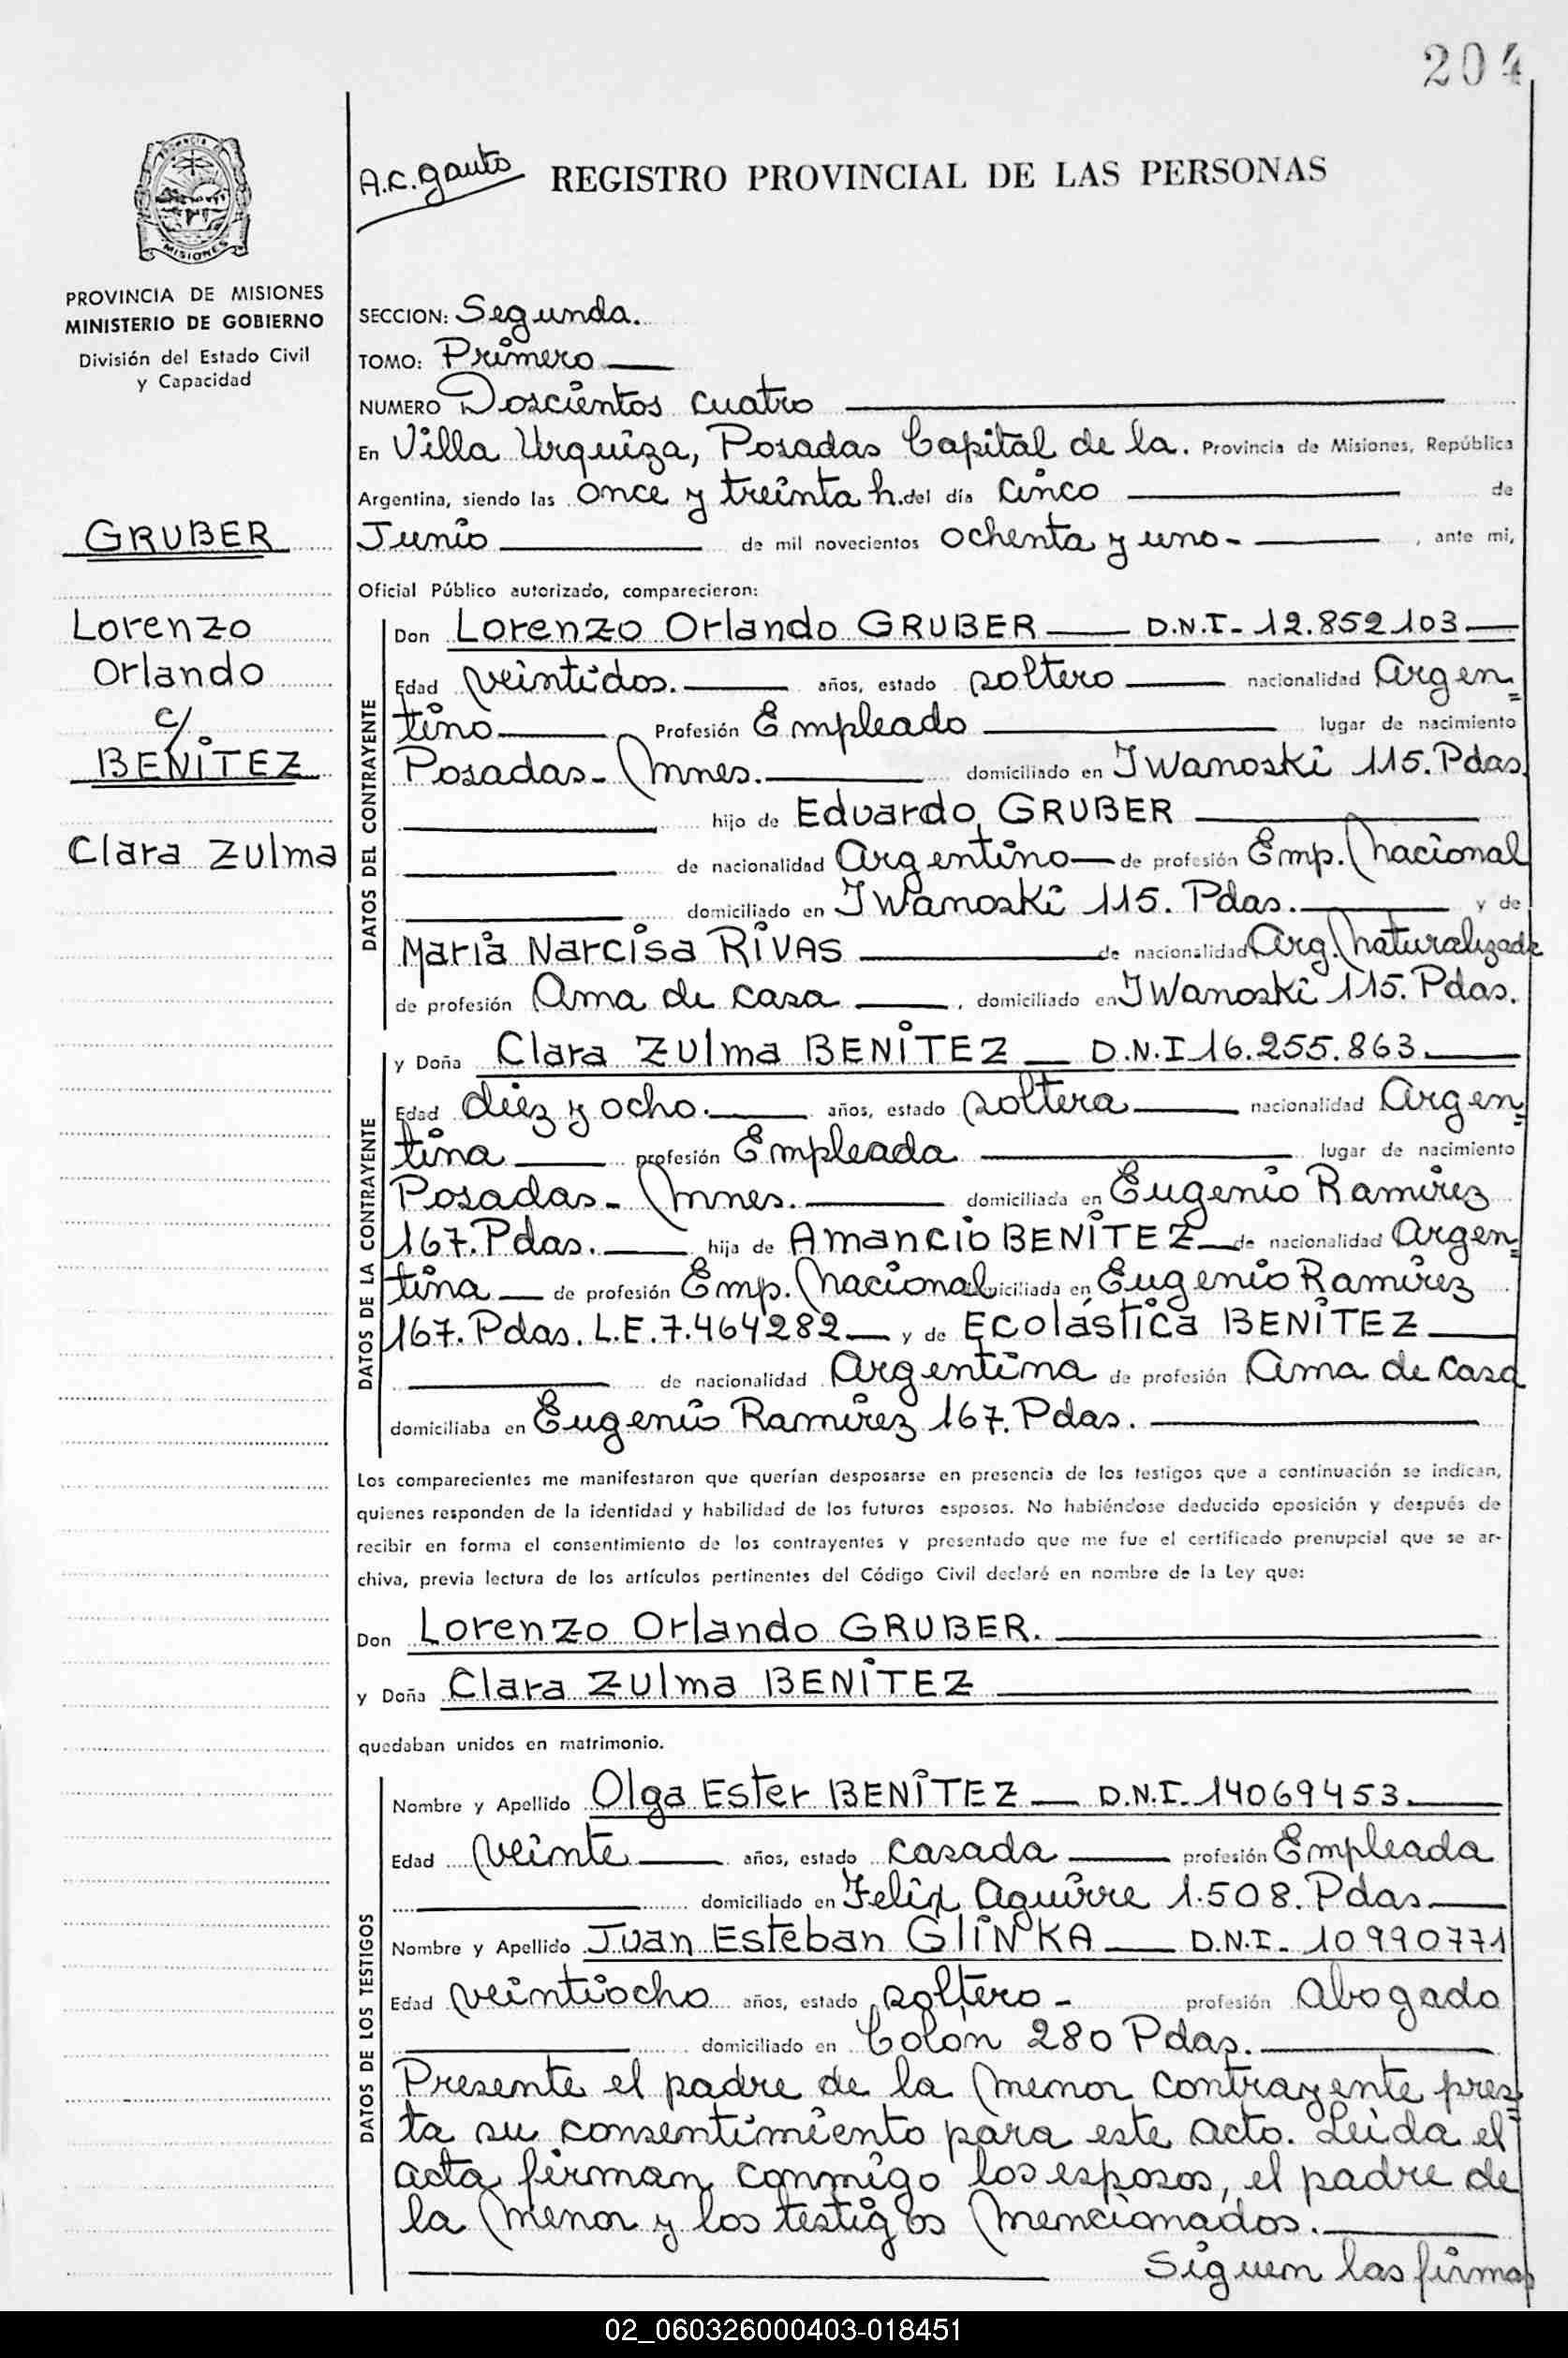 204
A.C. Gauto REGISTRO PROVINCIAL DE LAS PERSONAS
PROVINCIA DE MISIONES
MINISTERIO DE GOBIERNO
División del Estado Civil
y Capacidad
GRUBER
Lorenzo
Orlando
c/
BENITEZ
Clara Zulma
SECCION: Segunda.
TOMO: Primero
NUMERO Doscientos cuatro
En Villa Urquiza, Posadas Capital de la. Provincia de Misiones, República
Argentina, siendo las once y treinta h. del día cinco de
Junio de mil novecientos ochenta y uno- , ante mi,
Oficial Público autorizado, comparecieron:
DATOS DEL CONTRAYENTE
Don Lorenzo Orlando GRUBER D.N.I- 12.852103
Edad veintidos. años, estado soltero nacionalidad Argen=
tino Profesión Empleado lugar de nacimiento
Posadas- Mnes. domiciliado en Iwanoski 115. Pdas.
hijo de Eduardo GRUBER
de nacionalidad Argentino de profesión Emp. Nacional
domiciliado en Iwanoski 115. Pdas. y de
Maria Narcisa RIVAS de nacionalidad Arg. Naturalizada
de profesión Ama de casa , domiciliado en Iwanoski 115. Pdas.
DATOS DE LA CONTRAYENTE
y Doña Clara Zulma BENITEZ D.N.I 16.255.863
Edad diez y ocho. años, estado soltera nacionalidad Argen=
tina profesión Empleada lugar de nacimiento
Posadas- Mnes. domiciliada en Eugenio Ramirez
167. Pdas. hija de Amancio BENITEZ de nacionalidad Argen=
tina de profesión Emp. Nacional domiciliada en Eugenio Ramirez
167. Pdas. L.E. 7.464282 y de Ecolástica BENITEZ
de nacionalidad Argentina de profesión Ama de casa
domiciliaba en Eugenio Ramirez 167. Pdas.
Los comparecientes me manifestaron que querían desposarse en presencia de los testigos que a continuación se indican,
quienes responden de la identidad y habilidad de los futuros esposos. No habiéndose deducido oposición y después de
recibir en forma el consentimiento de los contrayentes y presentado que me fue el certificado prenupcial que se ar-
chiva, previa lectura de los artículos pertinentes del Código Civil declaré en nombre de la Ley que:
Don Lorenzo Orlando GRUBER.
y Doña Clara Zulma BENITEZ
quedaban unidos en matrimonio.
DATOS DE LOS TESTIGOS
Nombre y Apellido Olga Ester BENITEZ D.N.I- 14069453
Edad veinte años, estado casada profesión Empleada
domiciliado en Felix Aguirre 1.508. Pdas
Nombre y Apellido Juan Esteban GLINKA D.N.I- 10990771
Edad veintiocho años, estado soltero- profesión Abogado
domiciliado en Colón 280 Pdas.
Presente el padre de la menor contrayente pres=
ta su consentimiento para este acto. Leida el
acta firman conmigo los esposos, el padre de
la menor y los testigos mencionados.
Siguen las firmas
02_060326000403-018451